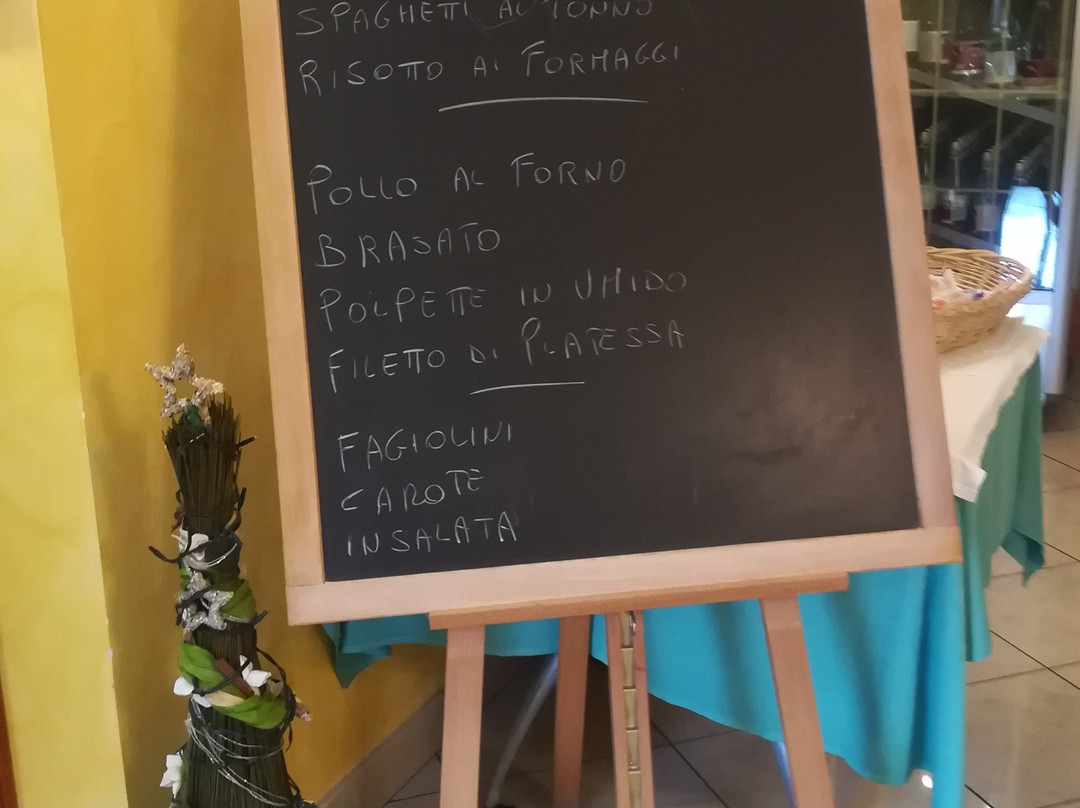 SPAGHETTI AL TONNO
RISOTTO AI FORMAGGI
POLLO AL FORNO
BRASATO
POLPETTE IN UMIDO
FILETTO DI PLATESSA
FAGIOLINI
CAROTE
INSALATA